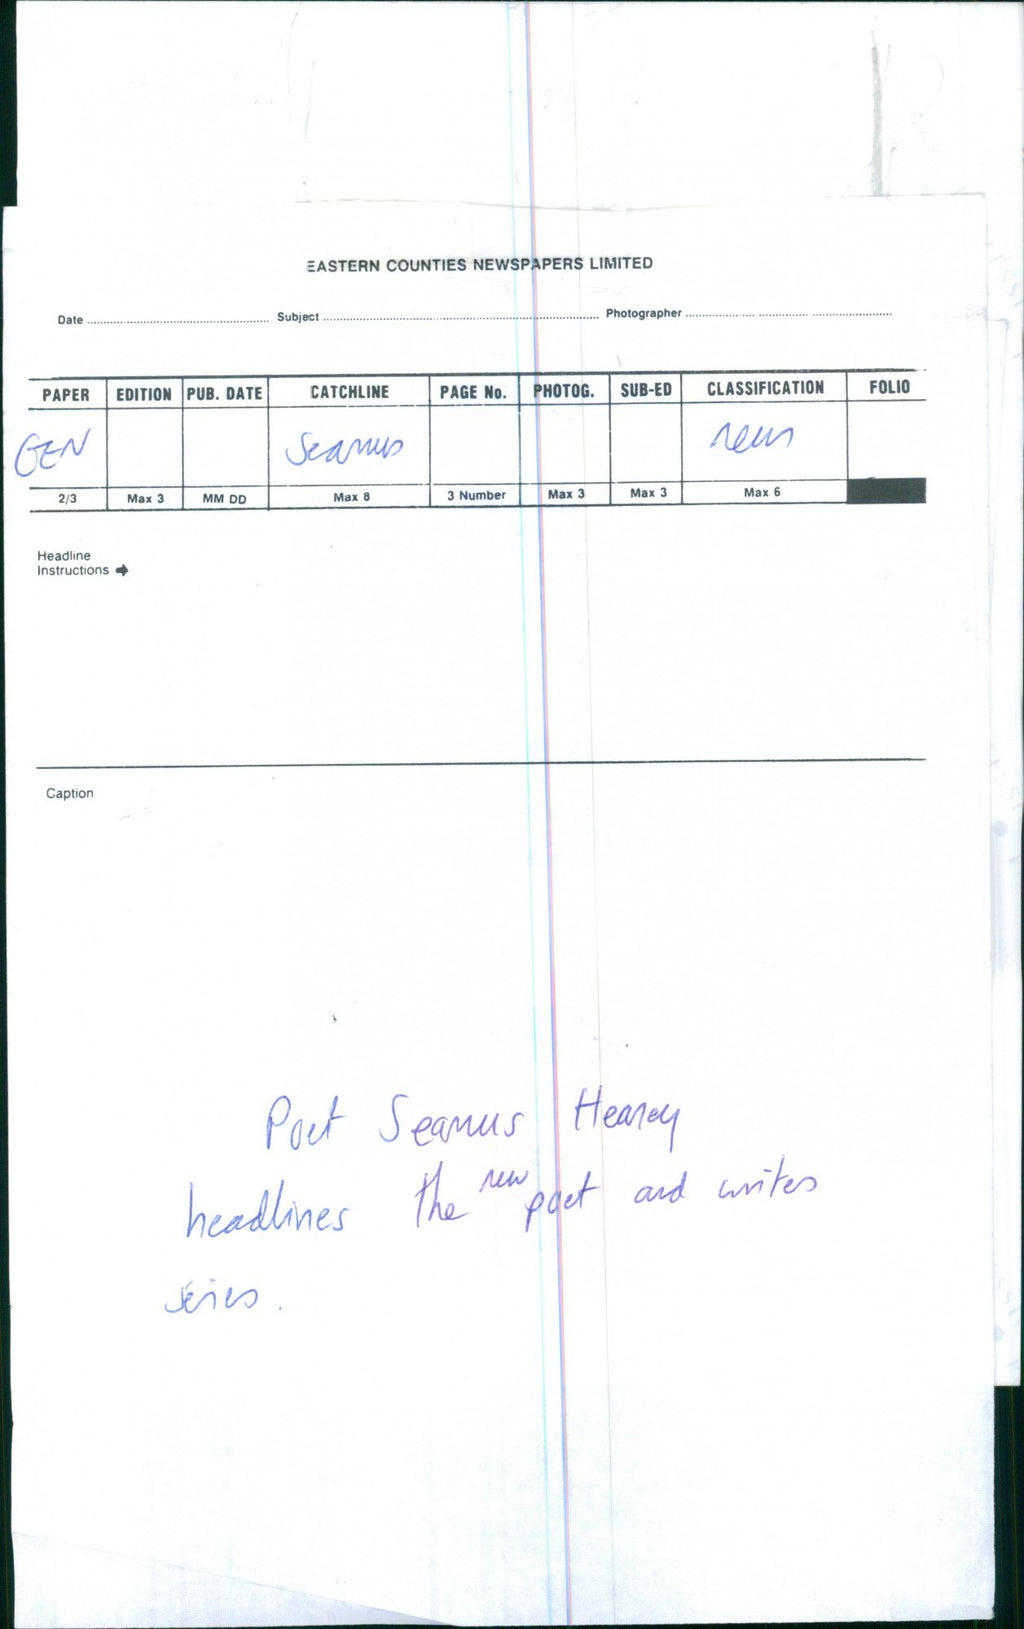 EASTERN COUNTIES NEWSPAPERS LIMITED
Date Subject Photographer
PAPER EDITION PUB. DATE CATCHLINE PAGE No. PHOTOG. SUB-ED CLASSIFICATION FOLIO
GEN Seamus news
2/3 Max 3 MM DD Max 8 3 Number Max 3 Max 3 Max 6
Headline
Instructions
Caption
Poet Seamus Heaney
headlines the new poet and writes
series.